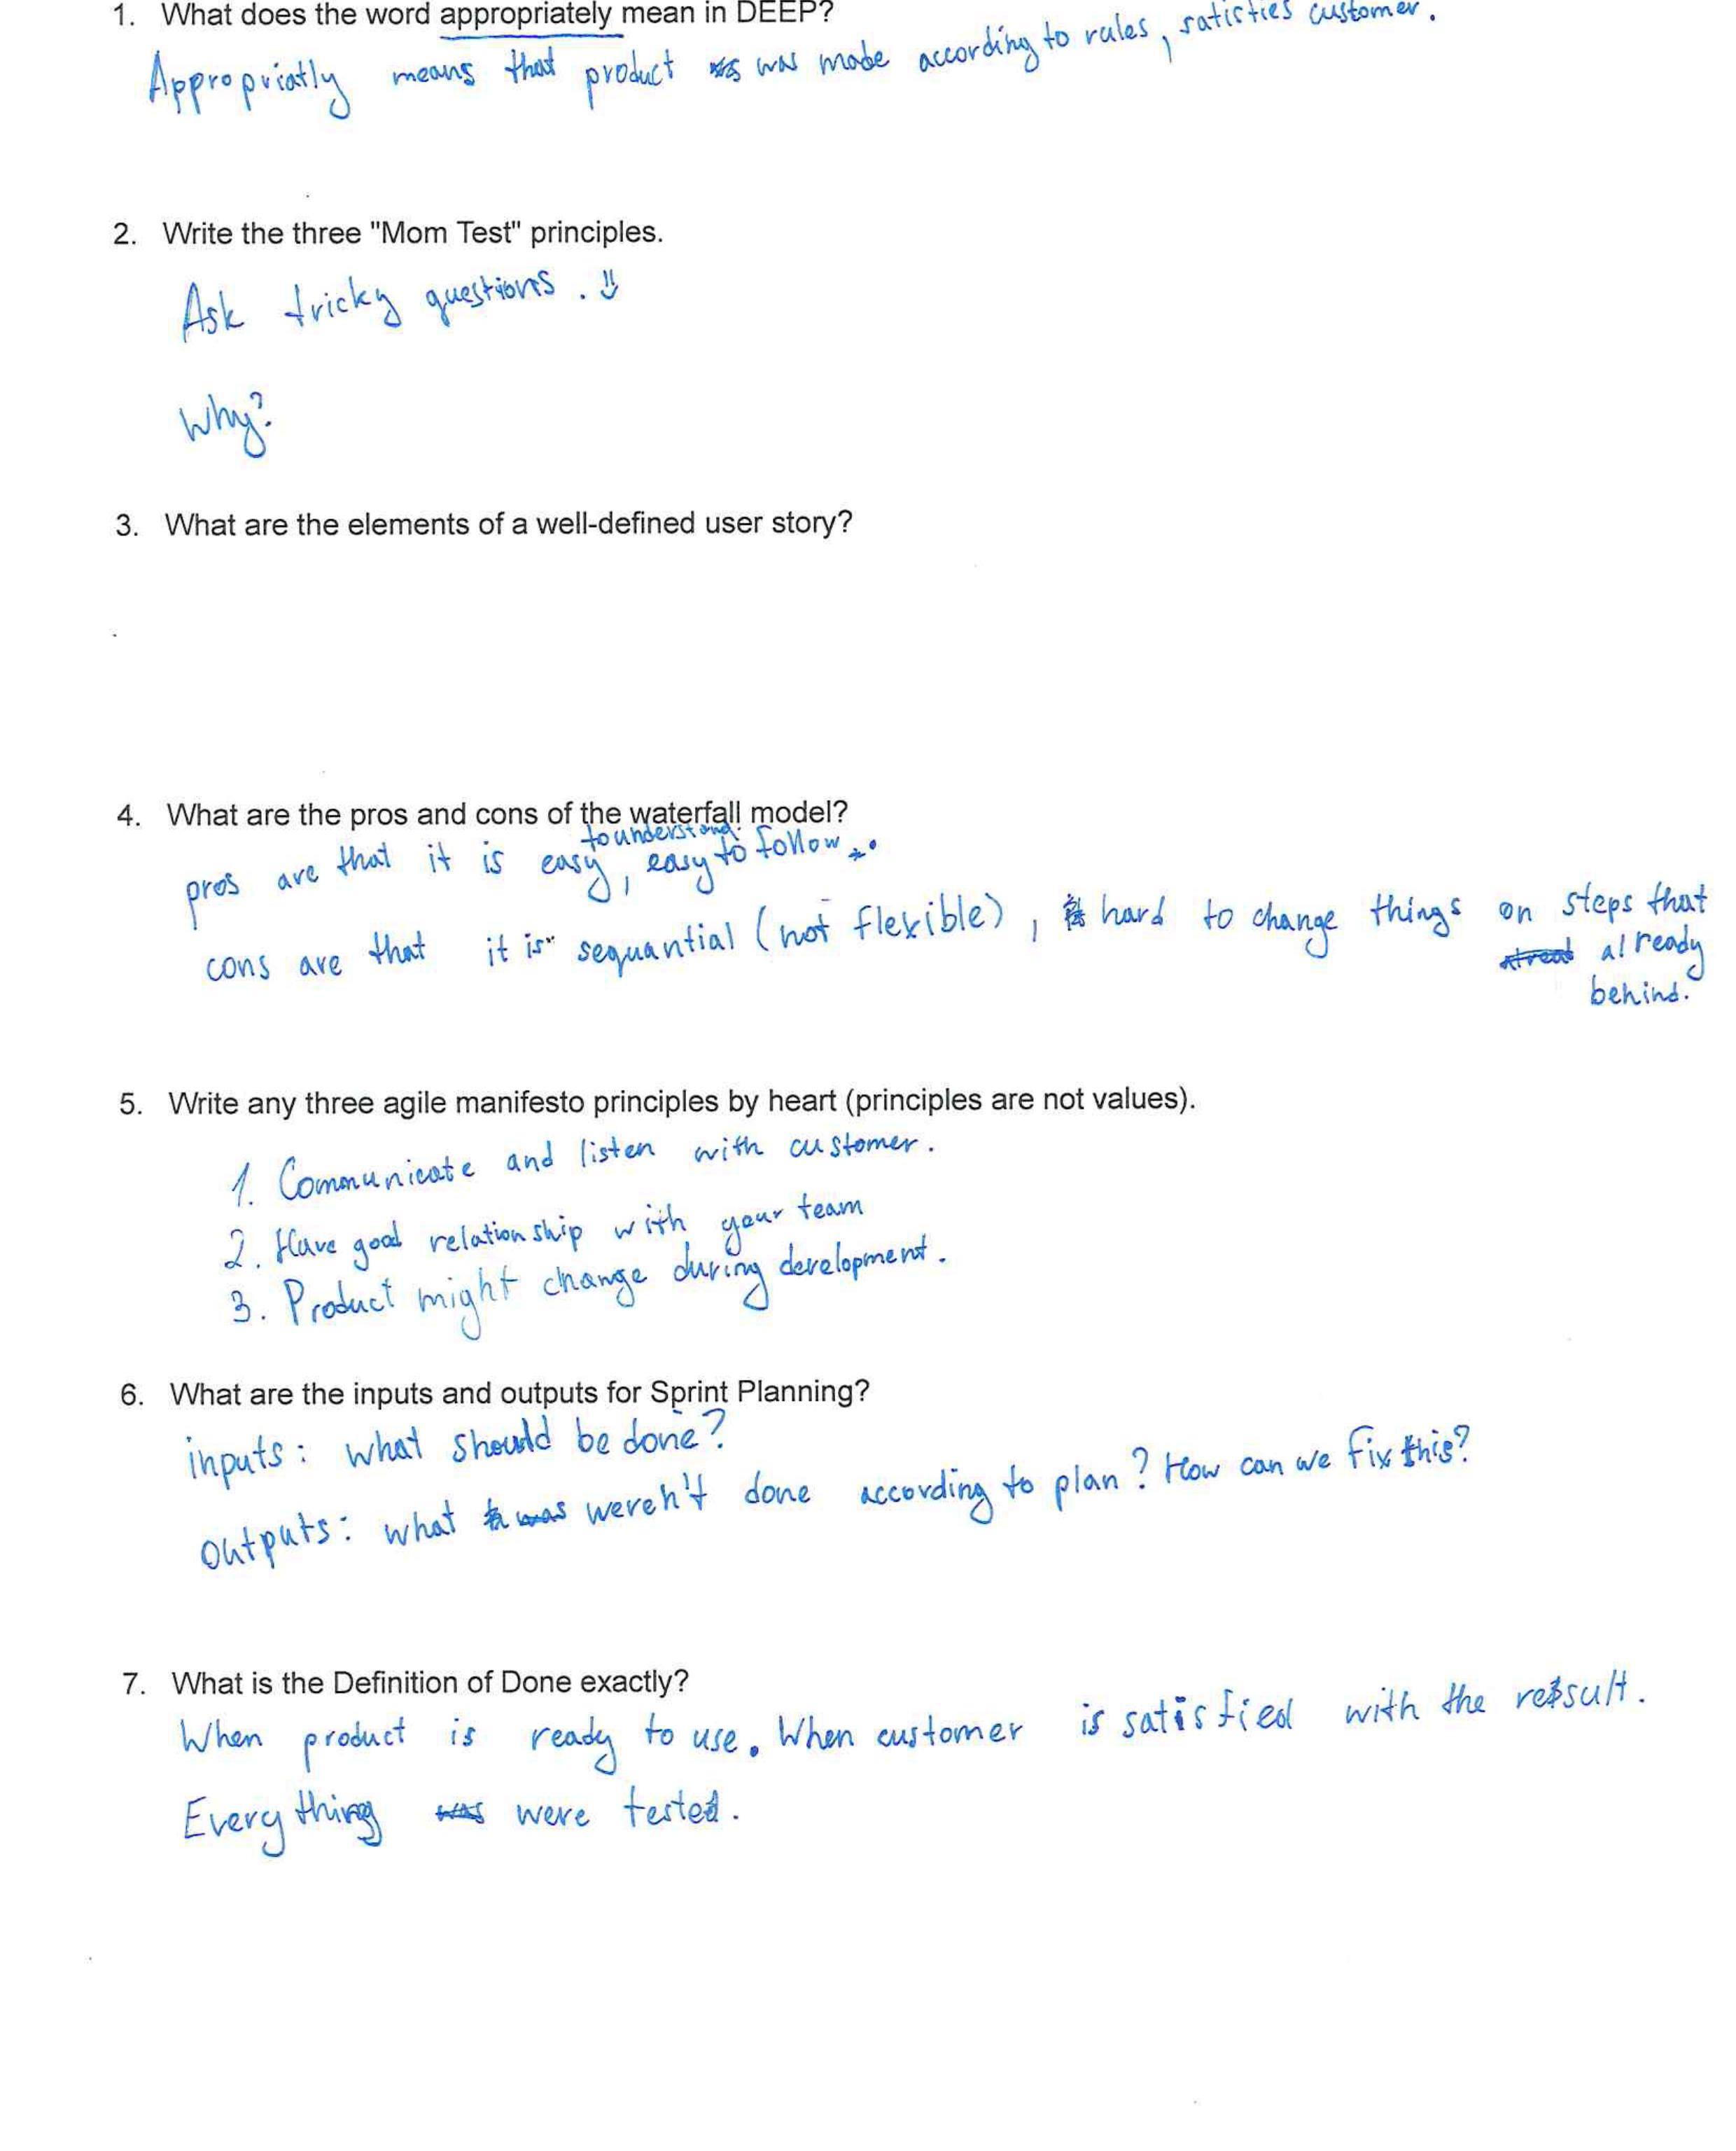 1. What does the word appropriately mean in DEEP?
Appropriatly means that product was made according to rules, satisfies customer.
2. Write the three "Mom Test" principles.
Ask tricky questions.
Why?
3. What are the elements of a well-defined user story?
4. What are the pros and cons of the waterfall model?
pros are that it is easy to understand, easy to follow.
cons are that it is sequantial (not flexible), hard to change things on steps that
already
behind.
5. Write any three agile manifesto principles by heart (principles are not values).
1. Communicate and listen with customer.
2. Have good relationship with your team
3. Product might change during development.
6. What are the inputs and outputs for Sprint Planning?
inputs: what should be done?
outputs: what weren't done according to plan? How can we fix this?
7. What is the Definition of Done exactly?
When product is ready to use. When customer is satisfied with the result.
Everything were tested.